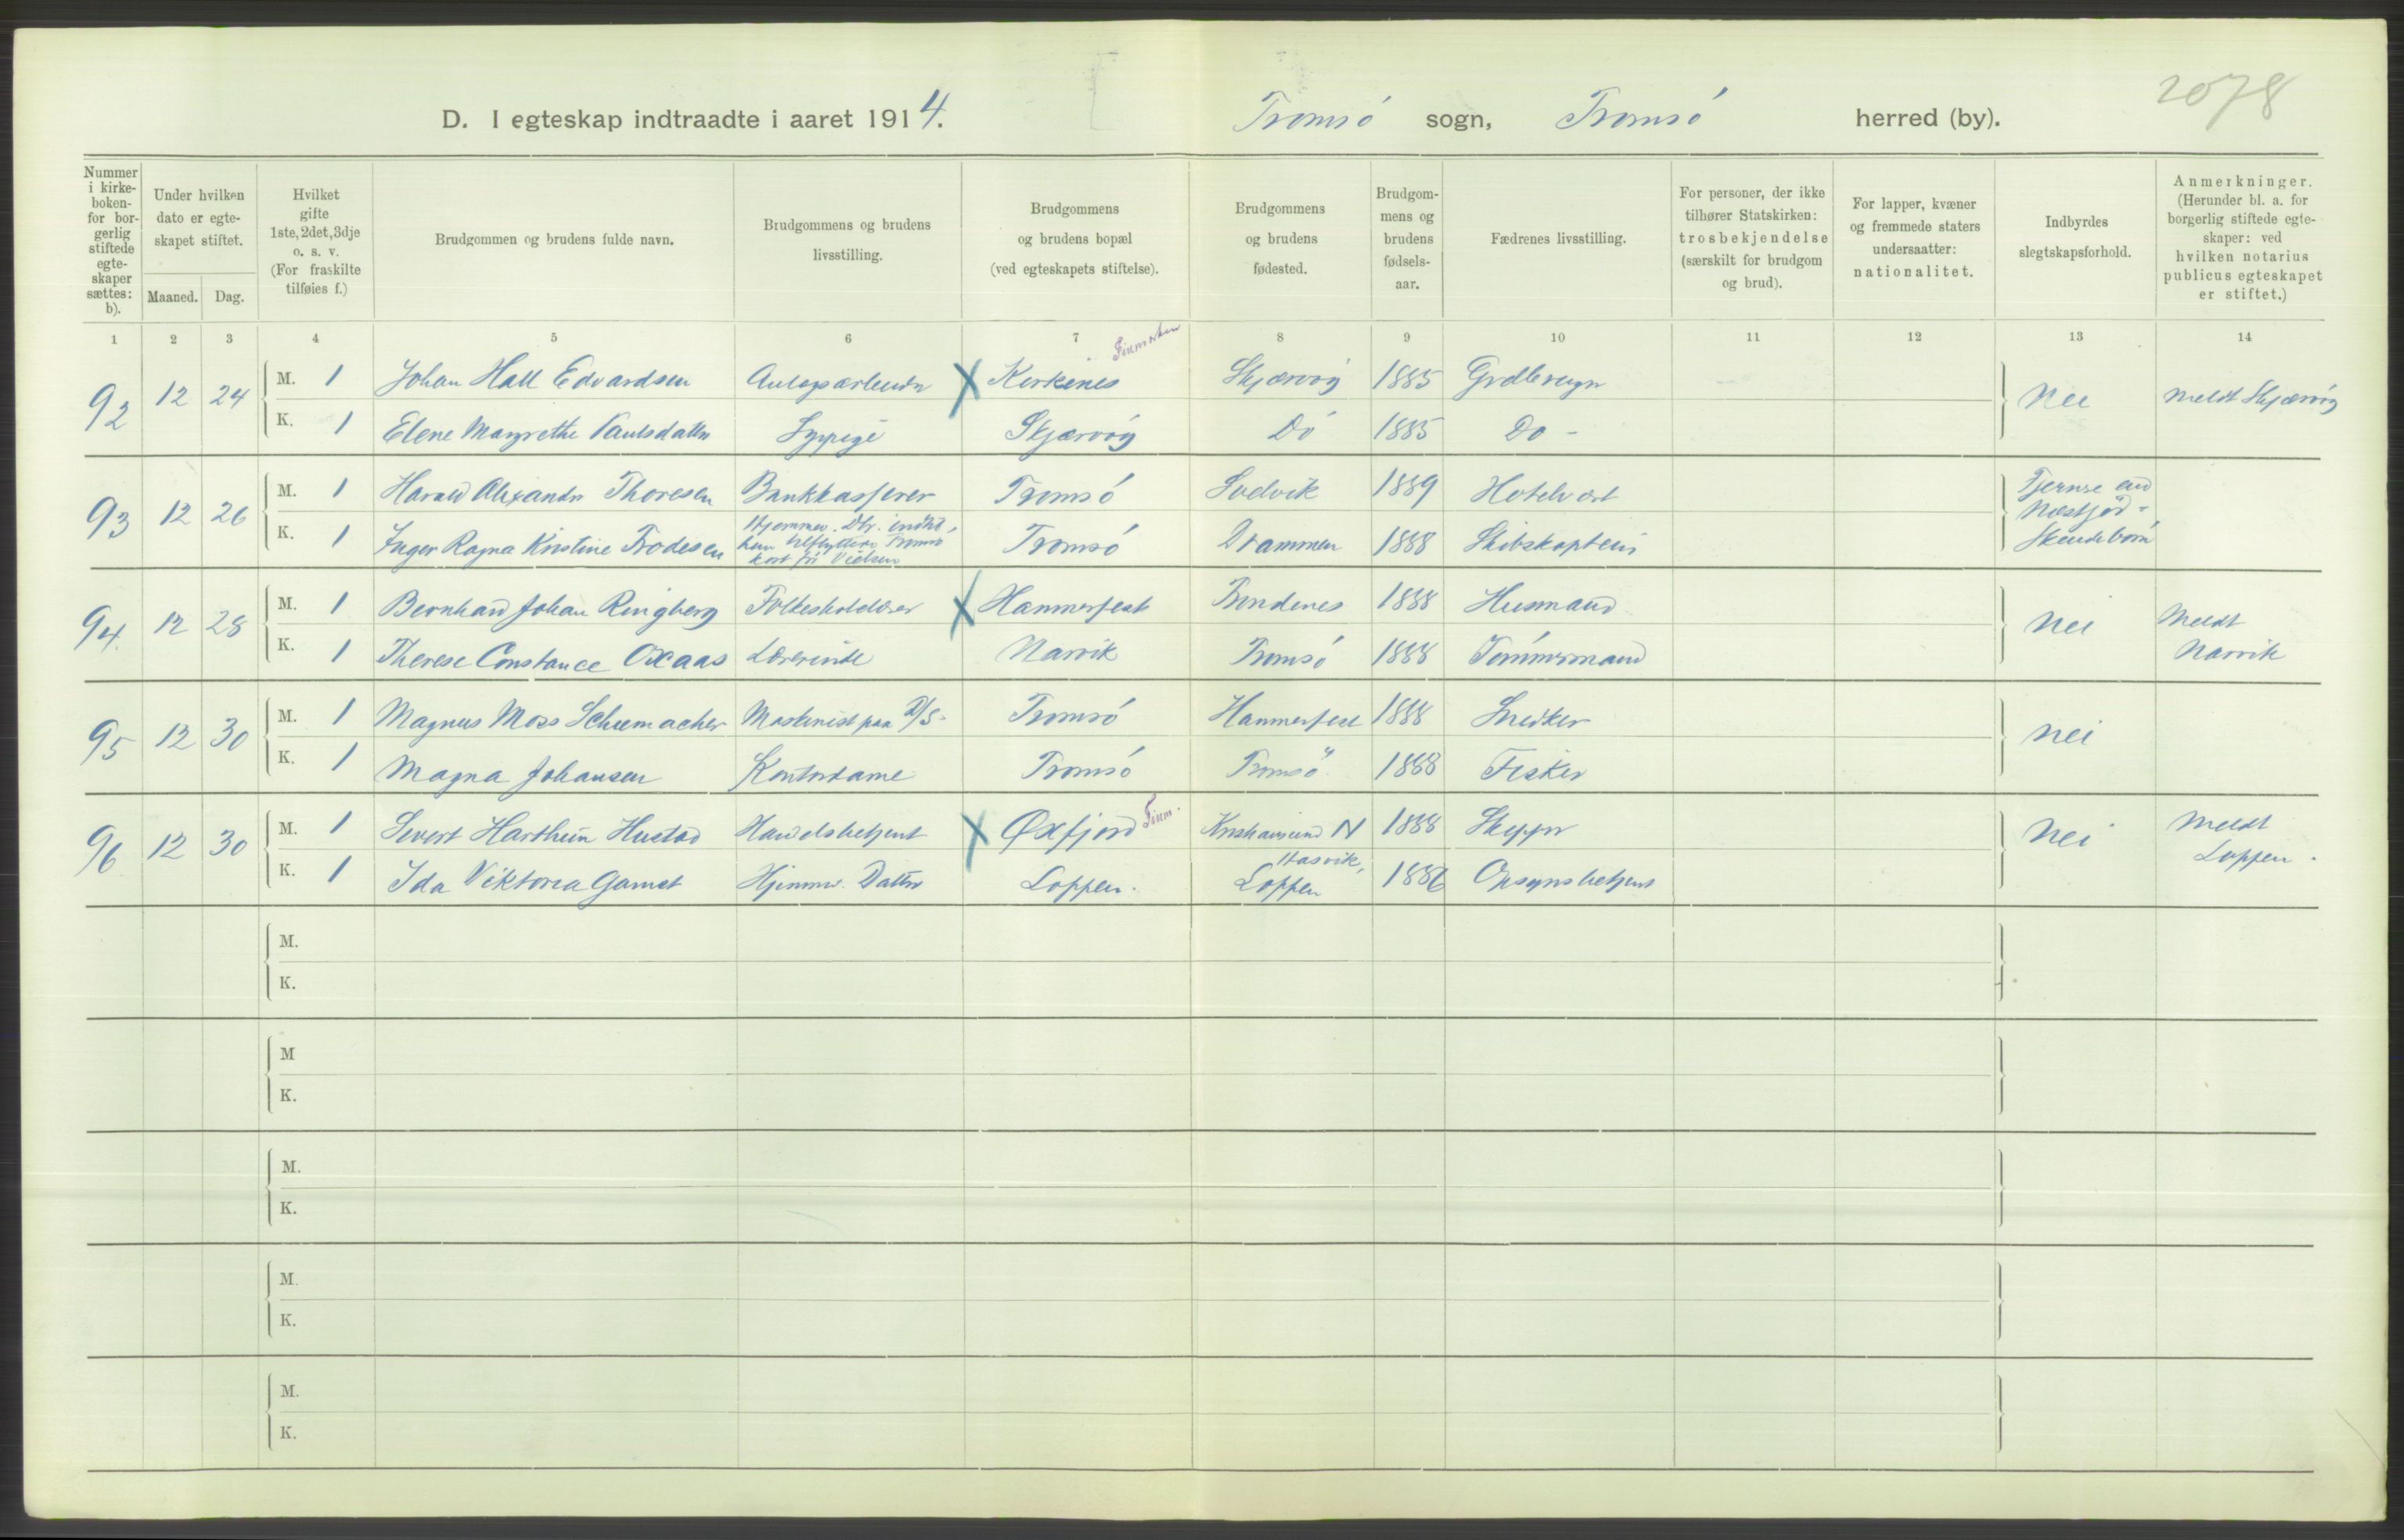 2078
D. I egteskap indtraadte i aaret 1914. Tromsö sogn, Tromsö herred (by).
Nummer i kirke-boken- for bor-gerlig stiftede egte-skaper sættes: b).
Under hvilken dato er egte-skapet stiftet.
Maaned. Dag.
Hvilket gifte 1ste, 2det, 3dje o. s. v. (For fraskilte tilføies f.)
Brudgommen og brudens fulde navn.
Brudgommens og brudens livsstilling.
Brudgommens og brudens bopæl (ved egteskapets stiftelse).
Brudgommens og brudens fødested.
Brudgom-mens og brudens fødsels-aar.
Fædrenes livsstilling.
For personer, der ikke tilhører Statskirken: trosbekjendelse (særskilt for brudgom og brud).
For lapper, kvæner og fremmede staters undersaatter: nationalitet.
Indbyrdes slegtskapsforhold.
Anmerkninger. (Herunder bl. a. for borgerlig stiftede egte-skaper: ved hvilken notarius publicus egteskapet er stiftet.)
1 2 3 4 5 6 7 8 9 10 11 12 13 14
92 12 24 M. 1 Johan Hall Edvardsen Anlegsarbeider X Kirkenes Skjærvöy 1885 Grdbruger Nei Meldt Skjærvöy
K. 1 Elene Margrethe Paulsdatter Sypige Skjærvöy Do 1885 Do -
93 12 26 M. 1 Harald Alexander Thoresen Bankkasserer Tromsö Lödvik 1889 Hotelvert Fjernere end Næstsöd-Skendebörn
K. 1 Inger Ragna Kristine Trodesen Hjemmev. Dtr. indtil hun tilflyttede Tromsö kort för Vielsen Tromsö Drammen 1888 Skibskaptein
94. 12 28 M. 1 Bernhard Johan Ringberg Folkeskolelærer X Hammerfest Trondenes 1888 Husmand Nei Meldt Narvik
K. 1 Therese Constance Oxaas Lærerinde Narvik Tromsö 1888 Tömmermand
95 12 30 M. 1 Magnus Moss Schumacher Maskinist paa D/S. Tromsö Hammerfest 1888 Snedker Nei
K. 1 Magna Johansen Kontordame Tromsö Tromsö 1888 Fisker
96 12 30 M. 1 Severt Harthun Hustad Handelsbetjent X Øxfjord Finm. Kristiansund N 1888 Skipper Nei Meldt Loppen.
K. 1 Ida Viktoria Gamst Hjemmev. Datter Loppen. Hasvik, Loppen 1886 Opsynsbetjent
M.
K.
M
K.
M.
K.
M.
K.
M.
K.